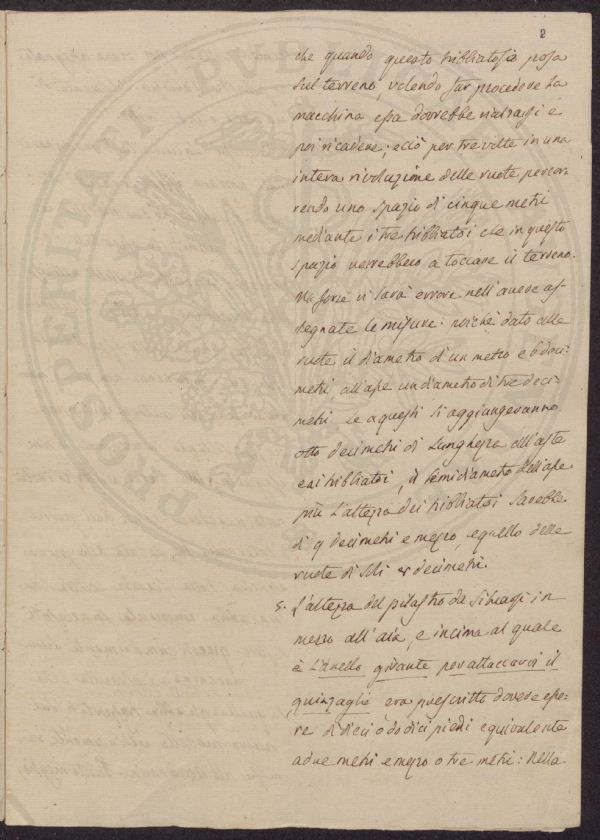 2
che quando questo tribbiatojo posa
sul terreno, volendo far procedere la
macchina essa dovrebbe rialzarsi e
poi ricadere; e ciò per tre volte in una
intera rivoluzione delle ruote percor
rendo uno spazio di cinque metri
mediante i tre tribbiatoi che in questo
spazio verrebbero a toccare il terreno.
Ma forse vi sarà errore nell'avere as
segnate le misure: poichè dato alle
ruote il diametro d'un metro e 6 deci:
metri all'asse un diametro di tre deci
metri, se a questi si aggiungeranno
otto decimetri di lunghezza all'aste
e ai tribbiatoi, il semidiametro dell'asse
più l'altezza dei tribbiatoi sarebbe
di 9 decimetri e mezzo, e quello delle
ruote di soli 8 decimetri.
5. L'altezza del pilastro da situarsi in
mezzo all'aia, e in cima al quale
è l'anello girante per attaccarvi il
guinzaglio era prescritto dovere esse:
re di dieci o dodici piedi equivalente
a due metri e mezzo o tre metri: Nella
PROSPERITATI PUBLICAE